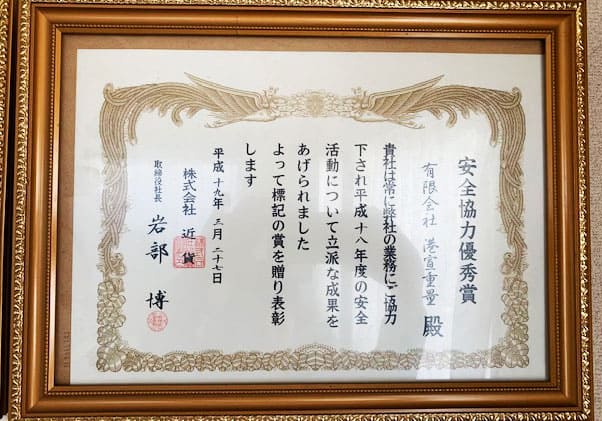 安全協力優秀賞
有限会社 港宣重量 殿
貴社は常に弊社の業務にご協力
下され平成十八年度の安全
活動について立派な成果を
あげられました
よって標記の賞を贈り表彰
します
平成十九年三月二十七日
株式会社 近貨
取締役社長 岩部 博